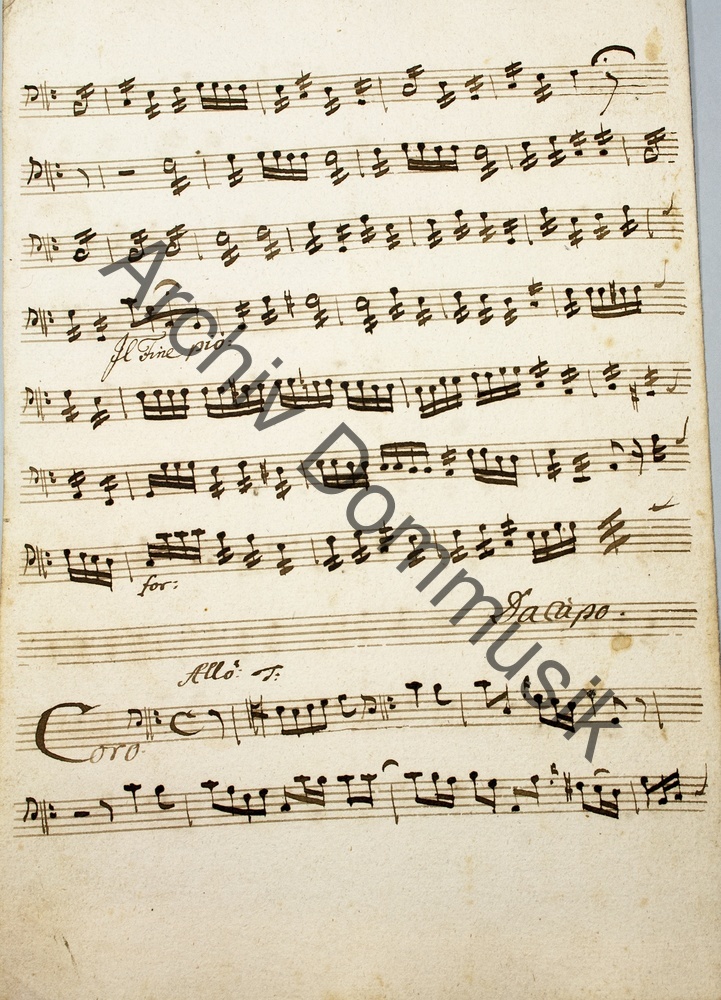 Il Fine pio:
for:
Da capo.
Allo: T:
Coro
Archiv Dommusik